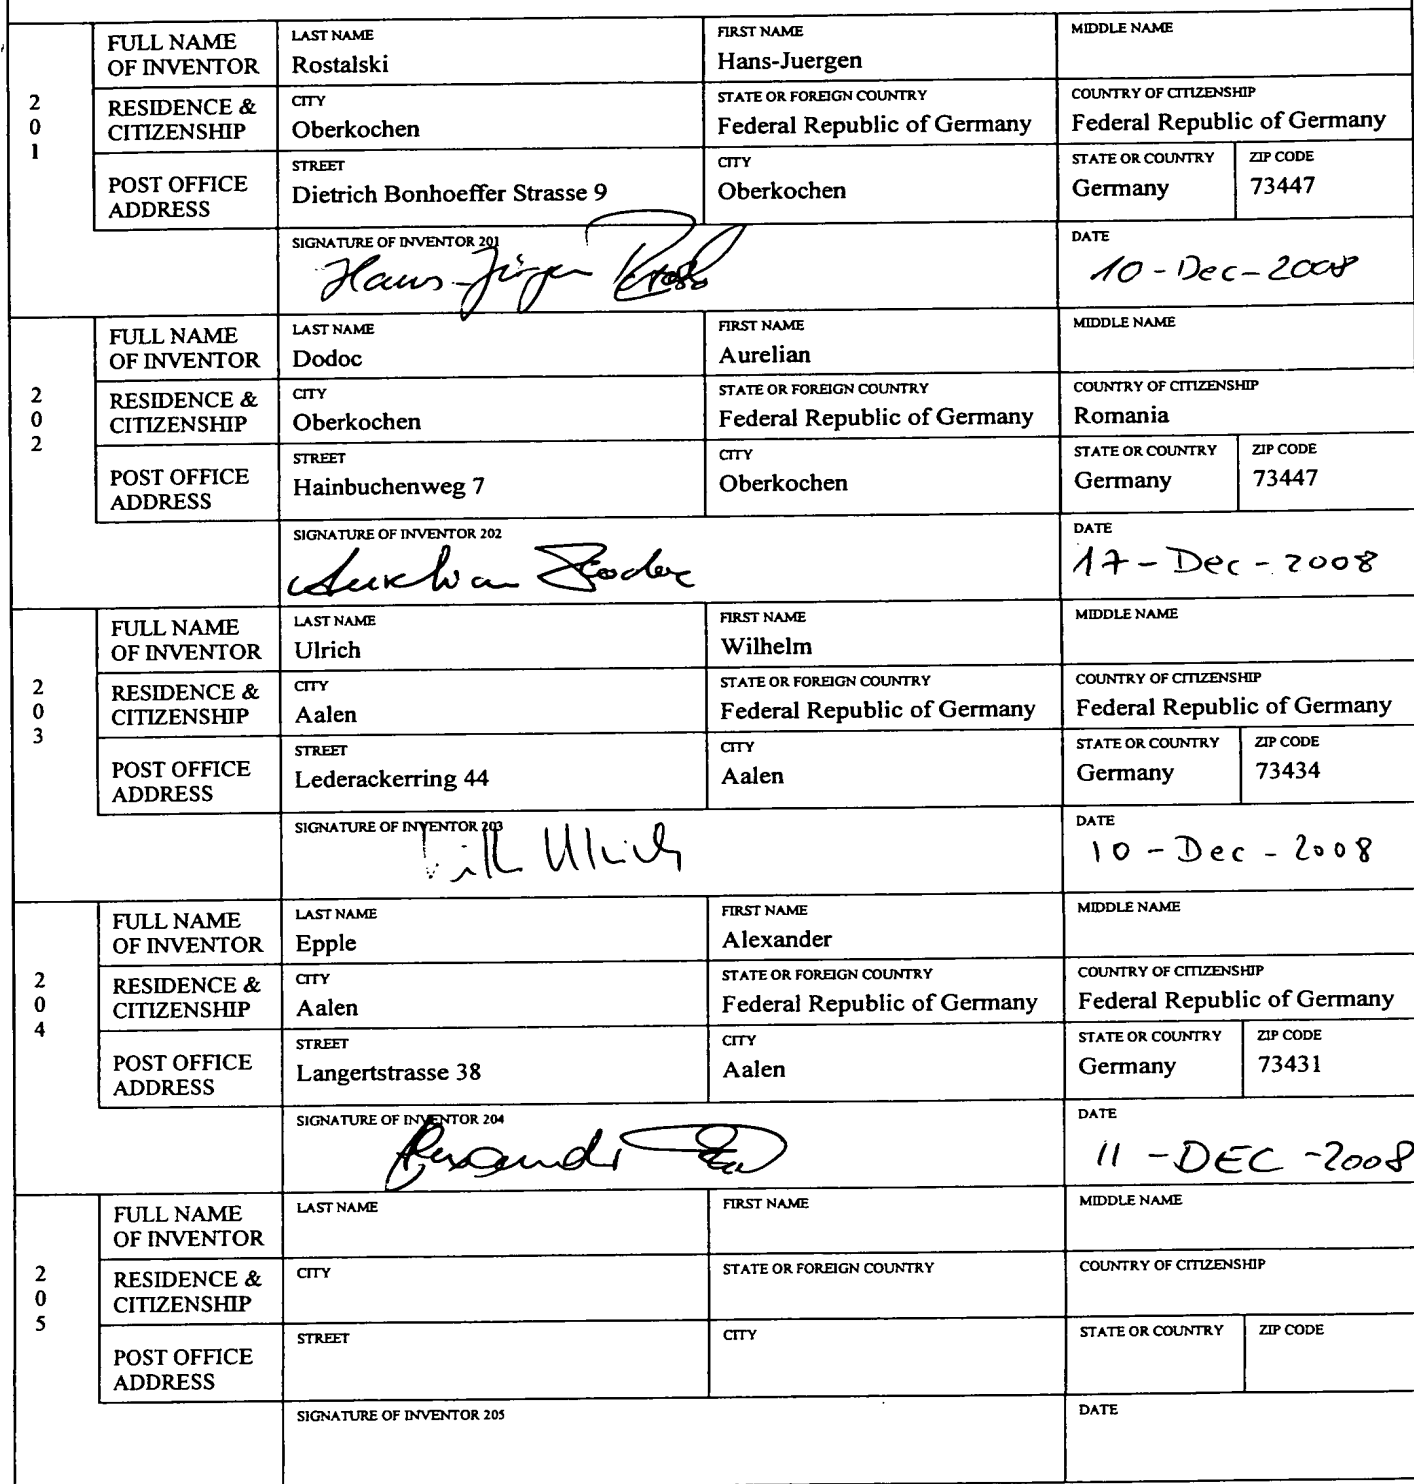 201
FULL NAME OF INVENTOR
LAST NAME
Rostalski
FIRST NAME
Hans-Juergen
MIDDLE NAME
RESIDENCE & CITIZENSHIP
CITY
Oberkochen
STATE OR FOREIGN COUNTRY
Federal Republic of Germany
COUNTRY OF CITIZENSHIP
Federal Republic of Germany
POST OFFICE ADDRESS
STREET
Dietrich Bonhoeffer Strasse 9
CITY
Oberkochen
STATE OR COUNTRY
Germany
ZIP CODE
73447
SIGNATURE OF INVENTOR 201
Hans-Jürgen
DATE
10-Dec-2008
202
FULL NAME OF INVENTOR
LAST NAME
Dodoc
FIRST NAME
Aurelian
MIDDLE NAME
RESIDENCE & CITIZENSHIP
CITY
Oberkochen
STATE OR FOREIGN COUNTRY
Federal Republic of Germany
COUNTRY OF CITIZENSHIP
Romania
POST OFFICE ADDRESS
STREET
Hainbuchenweg 7
CITY
Oberkochen
STATE OR COUNTRY
Germany
ZIP CODE
73447
SIGNATURE OF INVENTOR 202
Aurelian Dodoc
DATE
17-Dec-2008
203
FULL NAME OF INVENTOR
LAST NAME
Ulrich
FIRST NAME
Wilhelm
MIDDLE NAME
RESIDENCE & CITIZENSHIP
CITY
Aalen
STATE OR FOREIGN COUNTRY
Federal Republic of Germany
COUNTRY OF CITIZENSHIP
Federal Republic of Germany
POST OFFICE ADDRESS
STREET
Lederackerring 44
CITY
Aalen
STATE OR COUNTRY
Germany
ZIP CODE
73434
SIGNATURE OF INVENTOR 203
Ulrich
DATE
10-Dec-2008
204
FULL NAME OF INVENTOR
LAST NAME
Epple
FIRST NAME
Alexander
MIDDLE NAME
RESIDENCE & CITIZENSHIP
CITY
Aalen
STATE OR FOREIGN COUNTRY
Federal Republic of Germany
COUNTRY OF CITIZENSHIP
Federal Republic of Germany
POST OFFICE ADDRESS
STREET
Langertstrasse 38
CITY
Aalen
STATE OR COUNTRY
Germany
ZIP CODE
73431
SIGNATURE OF INVENTOR 204
DATE
11-DEC-2008
205
FULL NAME OF INVENTOR
LAST NAME
FIRST NAME
MIDDLE NAME
RESIDENCE & CITIZENSHIP
CITY
STATE OR FOREIGN COUNTRY
COUNTRY OF CITIZENSHIP
POST OFFICE ADDRESS
STREET
CITY
STATE OR COUNTRY
ZIP CODE
SIGNATURE OF INVENTOR 205
DATE